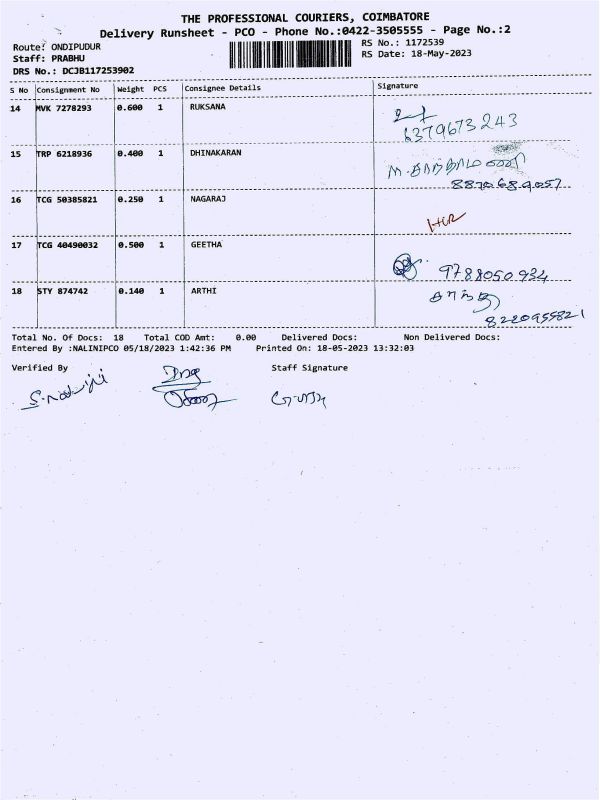 THE PROFESSIONAL COURIERS, COIMBATORE
Delivery Runsheet - PCO - Phone No.:0422-3505555 - Page No.:2
Route: ONDIPUDUR RS No.: 1172539
Staff: PRABHU RS Date: 18-May-2023
DRS No.: DCJB117253902
S No Consignment No Weight PCS Consignee Details Signature
14 MVK 7278293 0.600 1 RUKSANA
6379673243
15 TRP 6218936 0.400 1 DHINAKARAN
8870689057
16 TCG 50385821 0.250 1 NAGARAJ
17 TCG 40490032 0.500 1 GEETHA
9788050934
18 STY 874742 0.140 1 ARTHI
8220955821
Total No. Of Docs: 18 Total COD Amt: 0.00 Delivered Docs: Non Delivered Docs:
Entered By :NALINIPCO 05/18/2023 1:42:36 PM Printed On: 18-05-2023 13:32:03
Verified By Staff Signature
S.Nalini